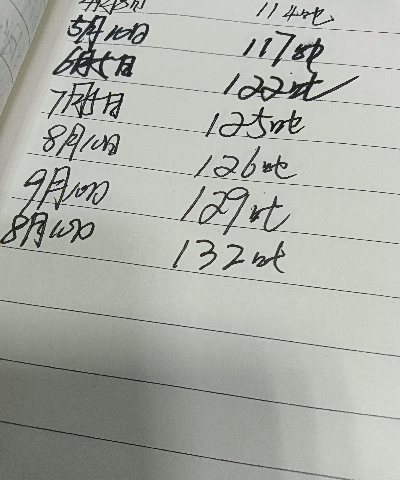 114吨
5月10日 117吨
6月5日 122吨
7月5日 125吨
8月10日 126吨
9月10日 129吨
8月10日 132吨